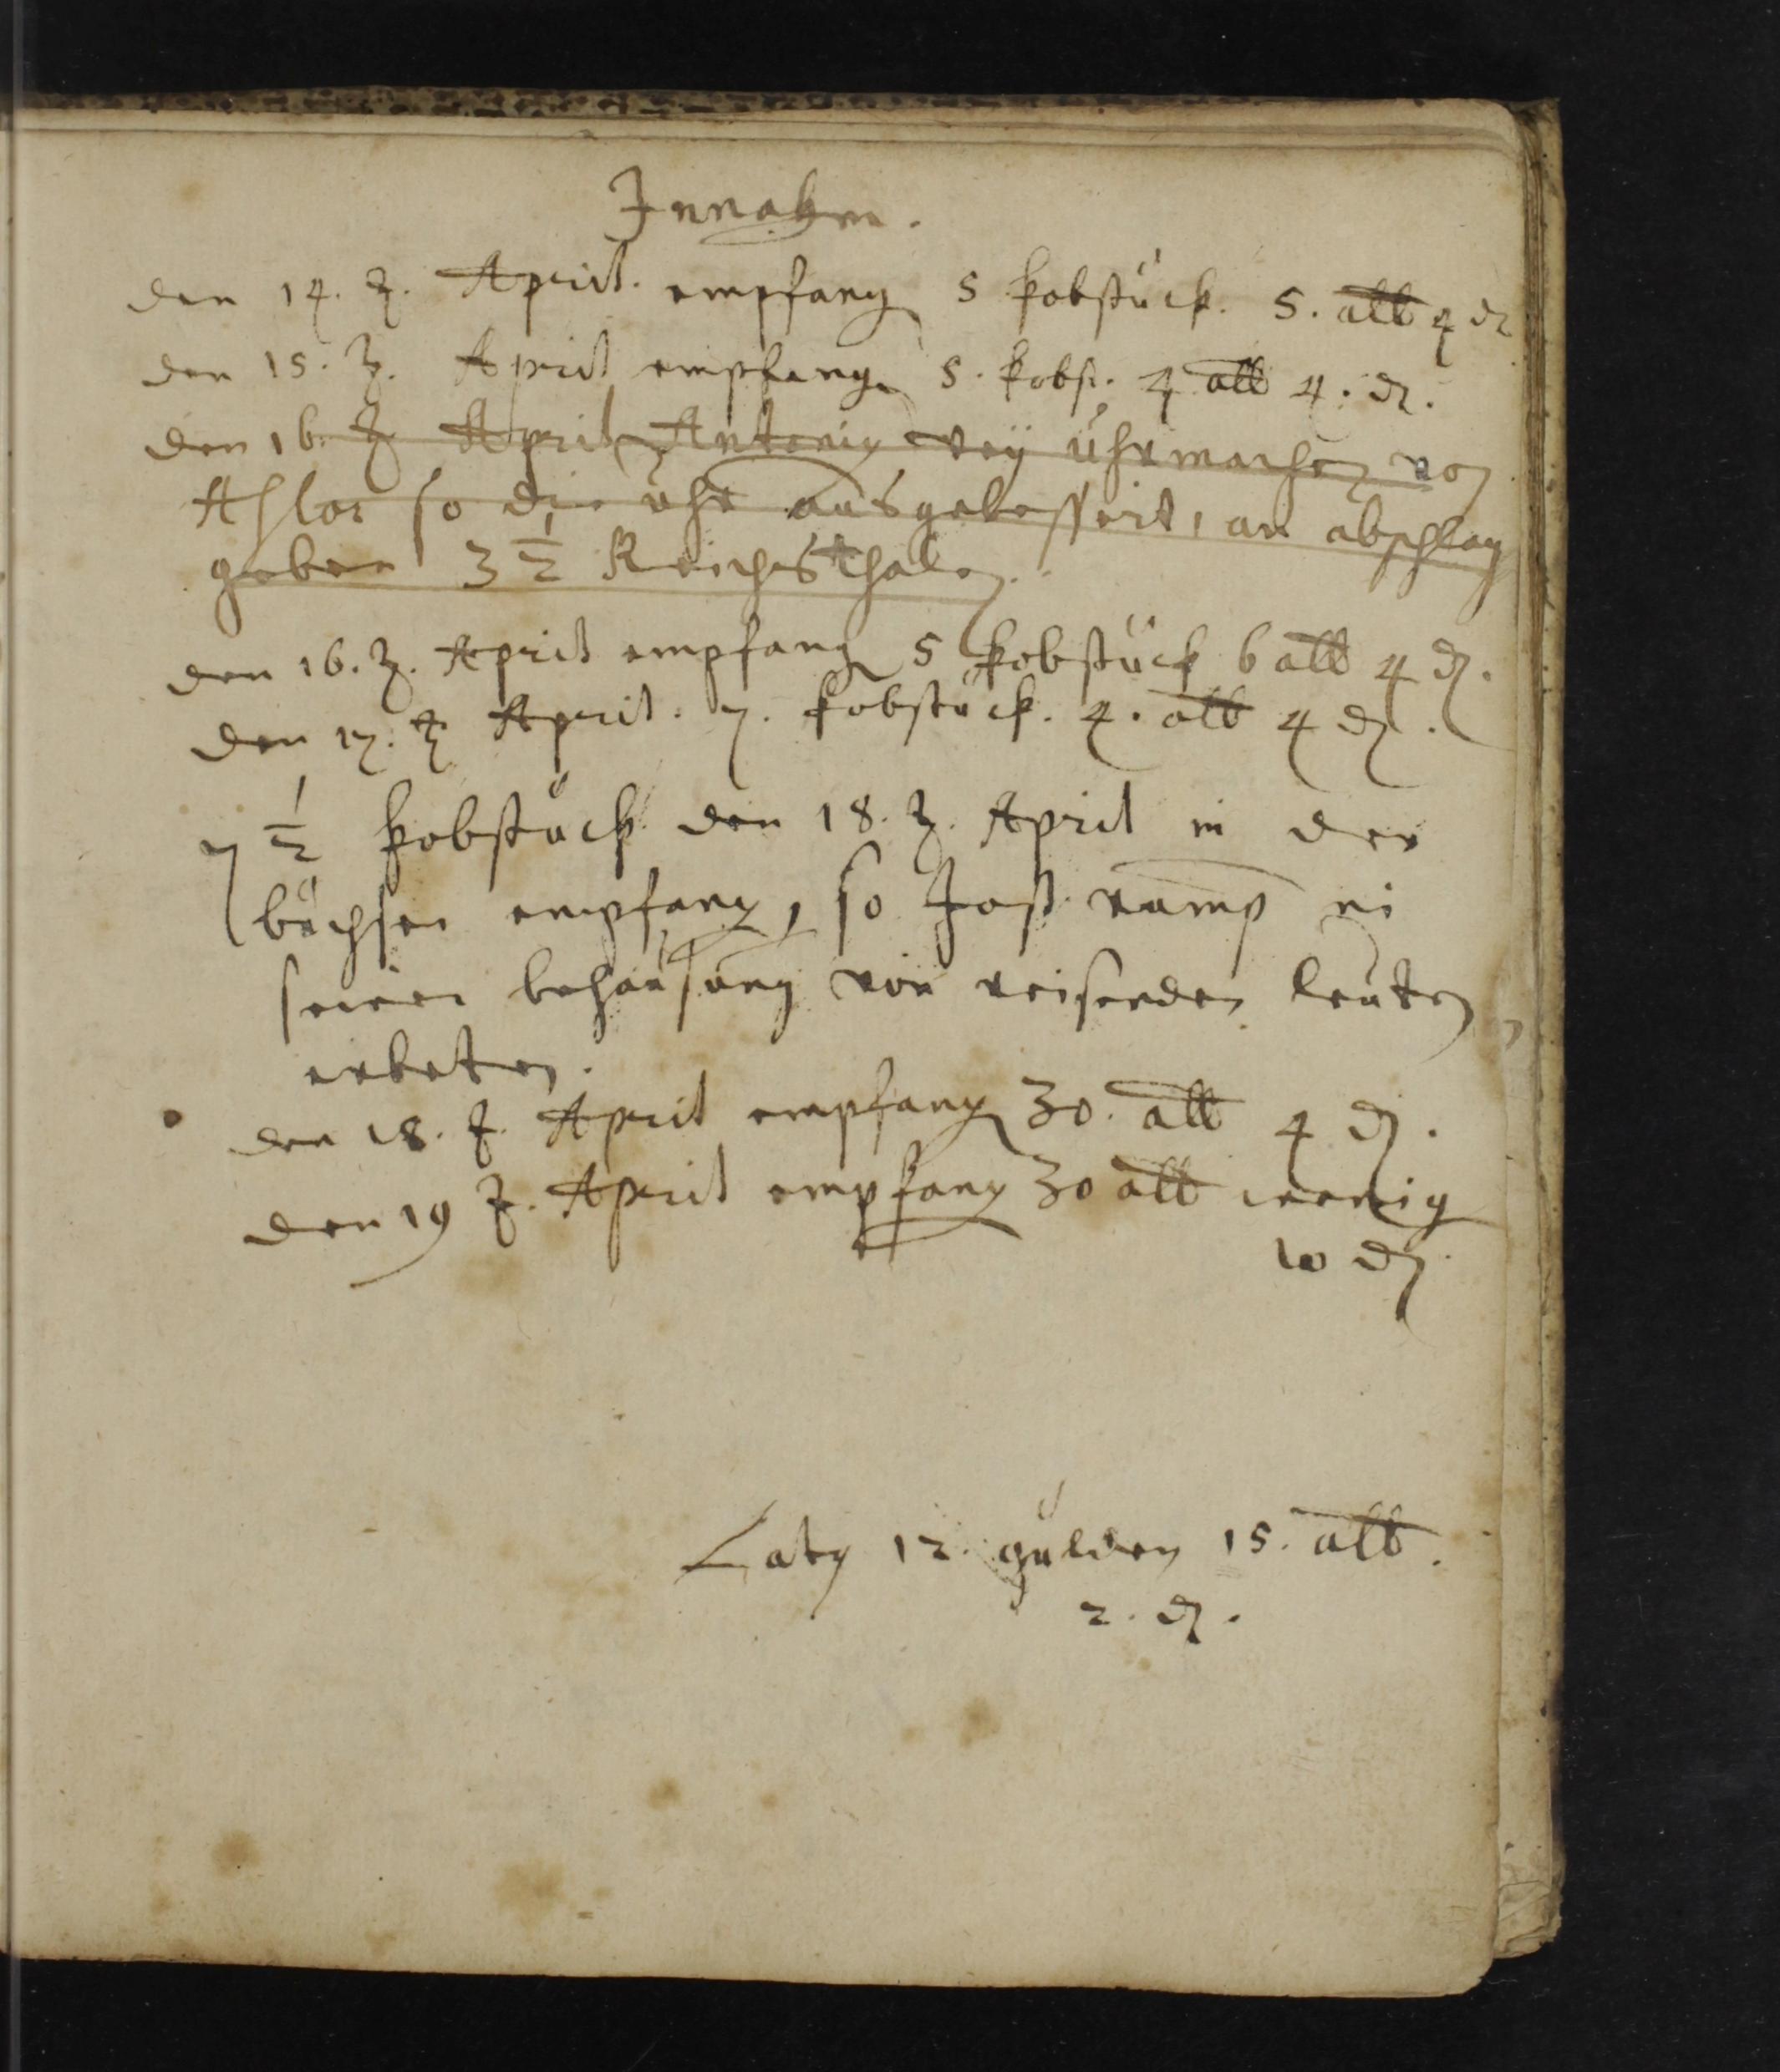 Innahm.
den 14. t. April. empfang 5 kobstück. 5. alb 4 d
den 15. t. April empfang 5. kobst. 4 alb 4. d.
den 16. t April Antonig uhrmacher von
Aslar so die uhr ausgebessert, an abschlag
geben 3 1/2 Reichsthaler.
den 16. t. April empfang 5 kobstück 6 alb 4 d.
den 17. t April. 7. kobstück. 4. alb 4 d.
7 1/2 kobstück den 18. t. April in der
büchsen empfang, so Jost in
seiner behausung von reisenden leuten
erbeten.
den 18. t. April empfang 30. alb 4 d.
den 19 t. April empfang 30 alb wenig
10 d.
Latg 12. gulden 15. alb.
2. d.